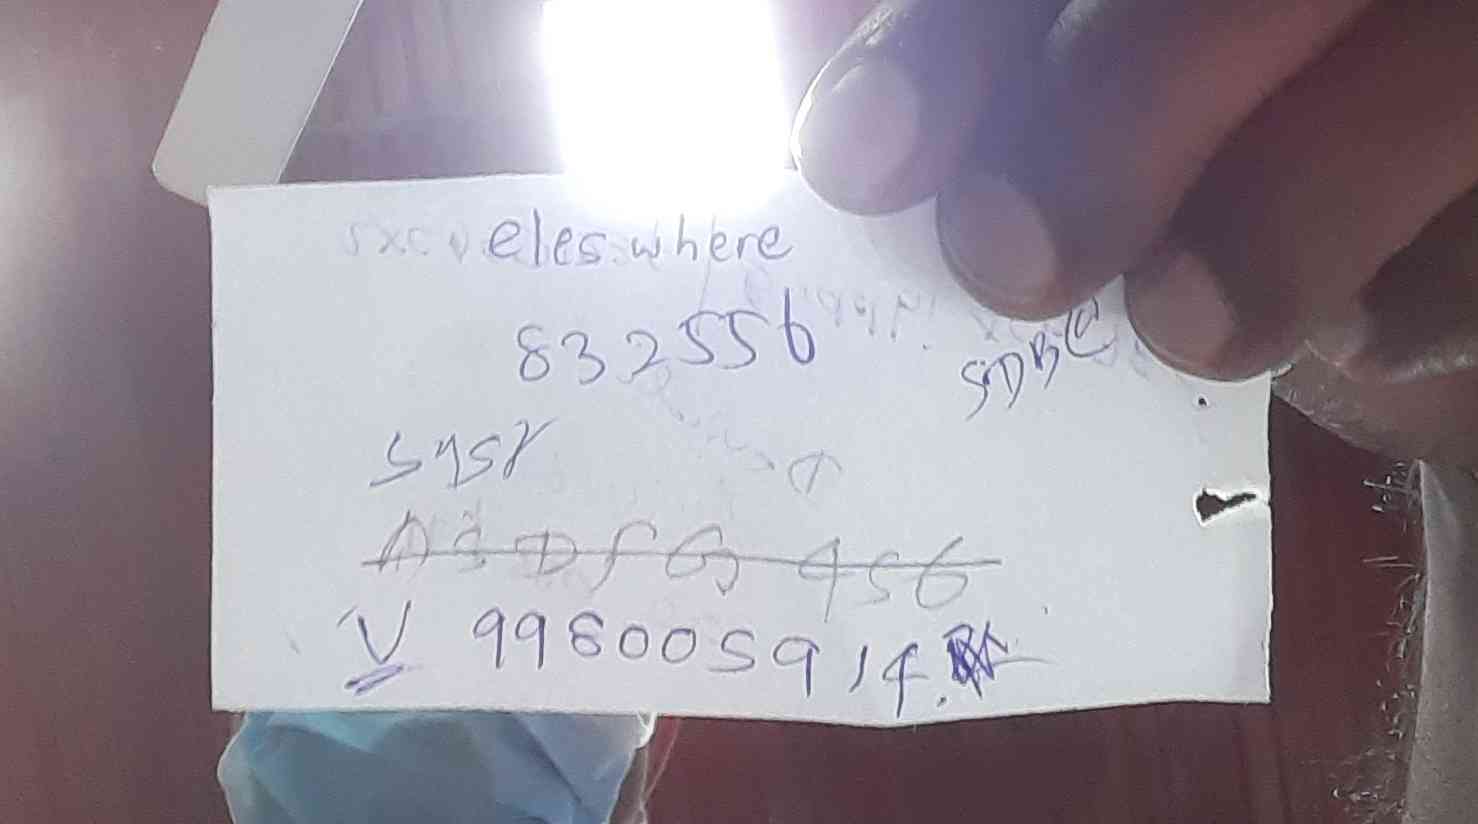 eles where
832556
SDB@
sysr
ASDFG 456
V 998005914.